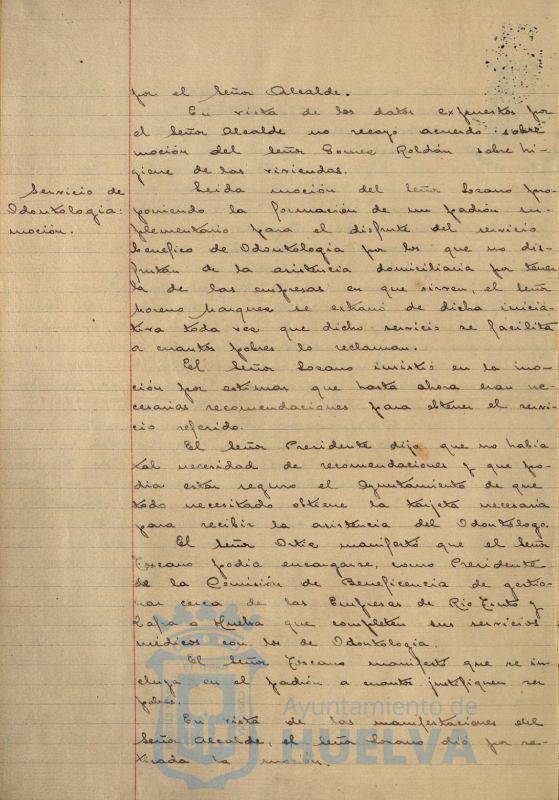 por el Señor Alcalde.
En vista de los datos expuestos por
el Señor Alcalde no recayo acuerdo sobre
moción del Señor Gomez Roldán sobre hi-
giene de las viviendas.
Servicio de
Odontologia:
moción.
Leida moción del Señor Lozano pro-
poniendo la formación de un padrón su-
plementario para el disfrute del servicio
benefico de Odontologia por los que no dis-
frutan de la asistencia domiciliaria por tener-
la de las empresas en que sirven, el Señor
Moreno Marquez se extrañó de dicha inicia-
tiva toda vez que dicho servicio se facilita
a cuantos pobres lo reclaman.
El Señor Lozano insistió en la mo-
ción por estimar que hasta ahora eran ne-
cesarias recomendaciones para obtener el servi-
cio referido.
El Señor Presidente dijo que no habia
tal necesidad de recomendaciones y que po-
dia estar seguro el Ayuntamiento de que
todo necesitado obtiene la tarjeta necesaria
para recibir la asistencia del Odontólogo.
El Señor Ortiz manifestó que el Señor
Toscano podia encargarse, como Presidente
de la Comisión de Beneficencia de gestio-
nar cerca de las Empresas de Rio Tinto y
Zafra a Huelva que completen sus servicios
médicos con los de Odontologia.
El Señor Toscano manifestó que se in-
cluya en el padrón a cuantos justifiquen ser
pobres.
En vista de las manifestaciones del
Señor Alcalde, el Señor Lozano dió por re-
tirada la moción.
Ayuntamiento de
HUELVA